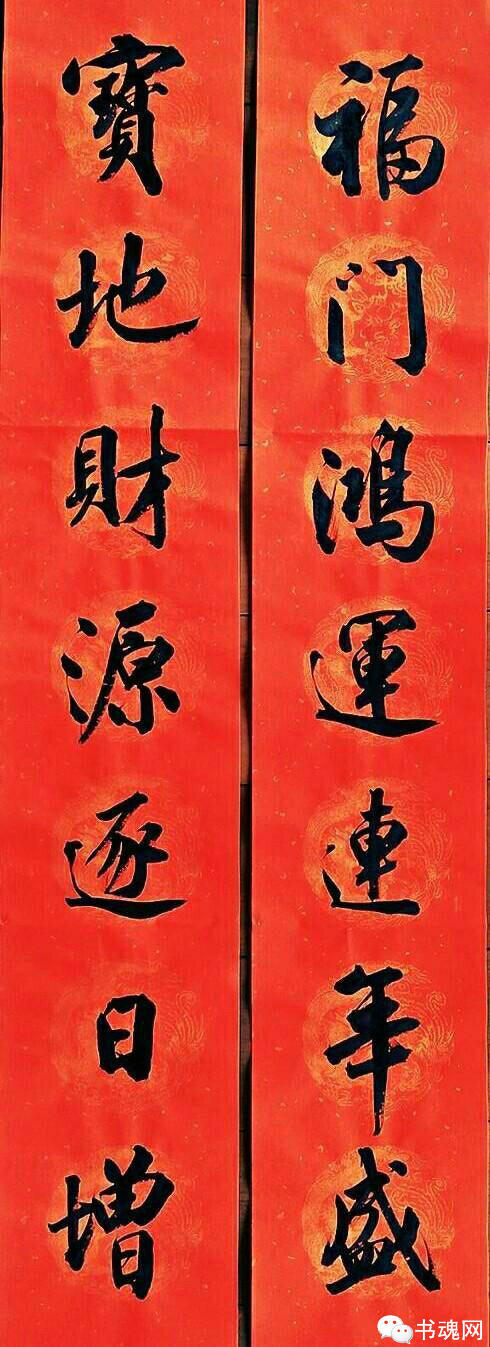 福门鴻運連年盛
寶地財源逐日增
书魂网